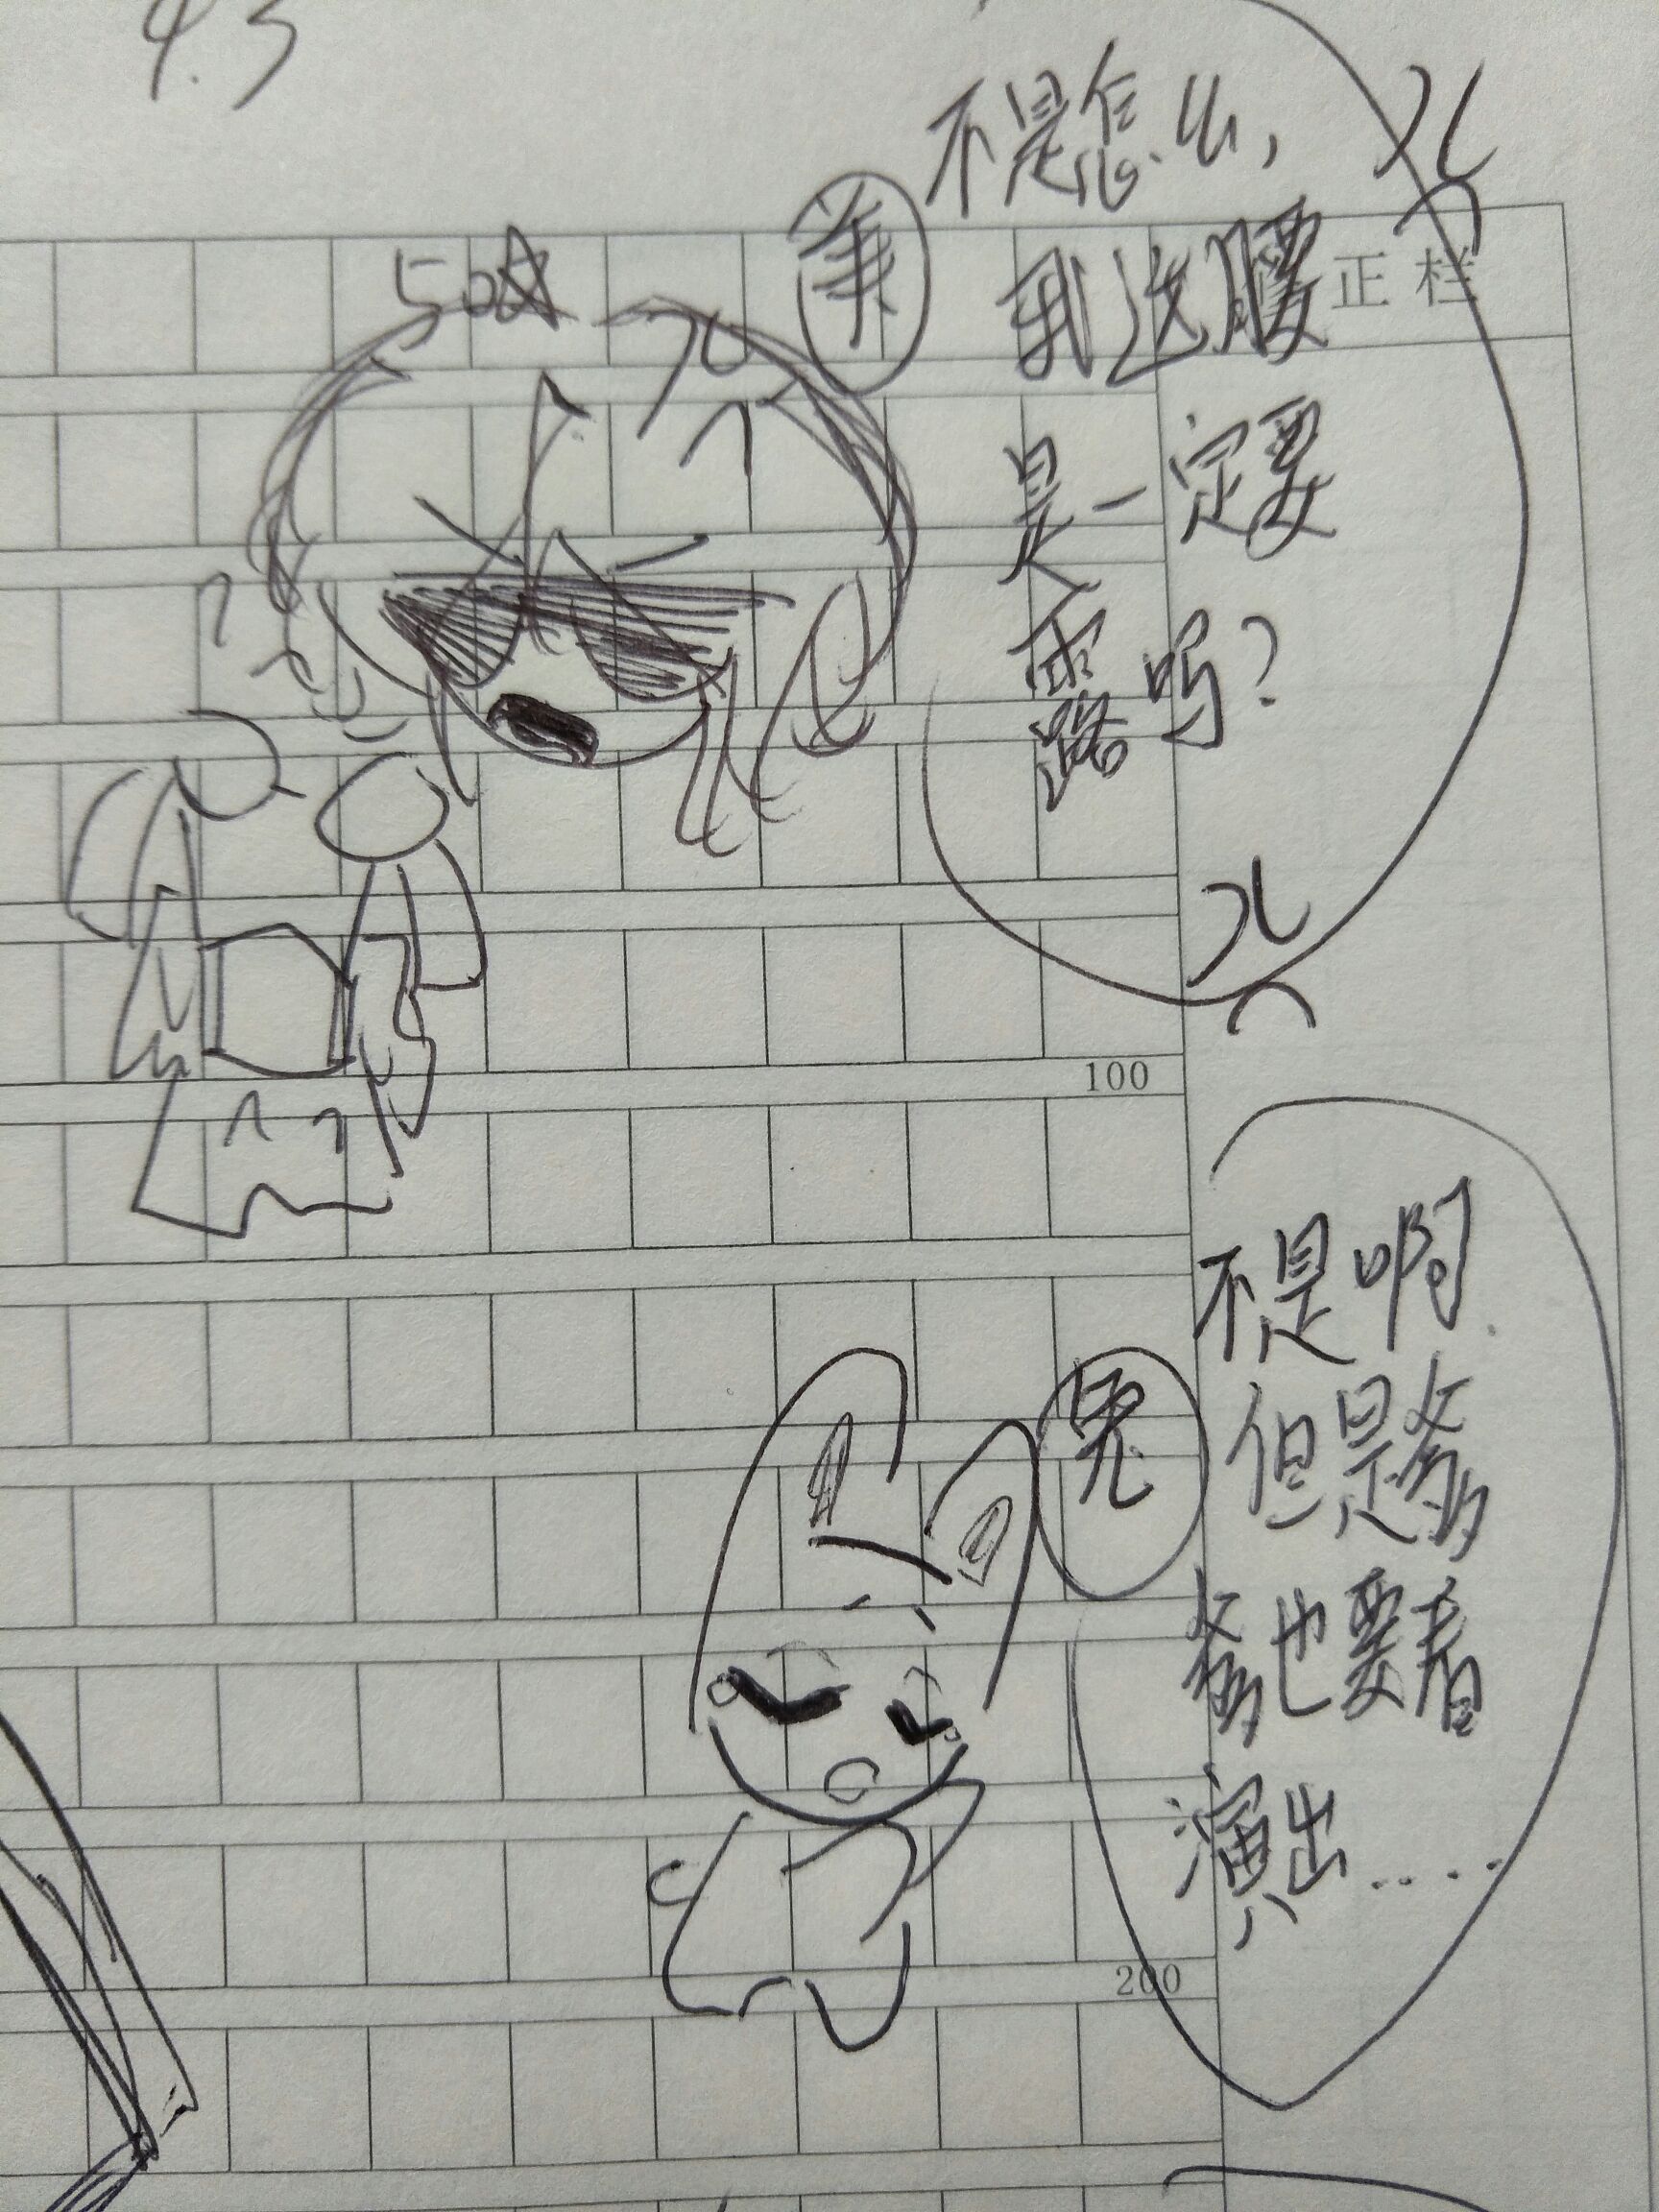 4.3
不是怎么,
我这腰
是一定要
露吗?
正栏
100
不是啊.
但是爹
爹也要看
演出....
200